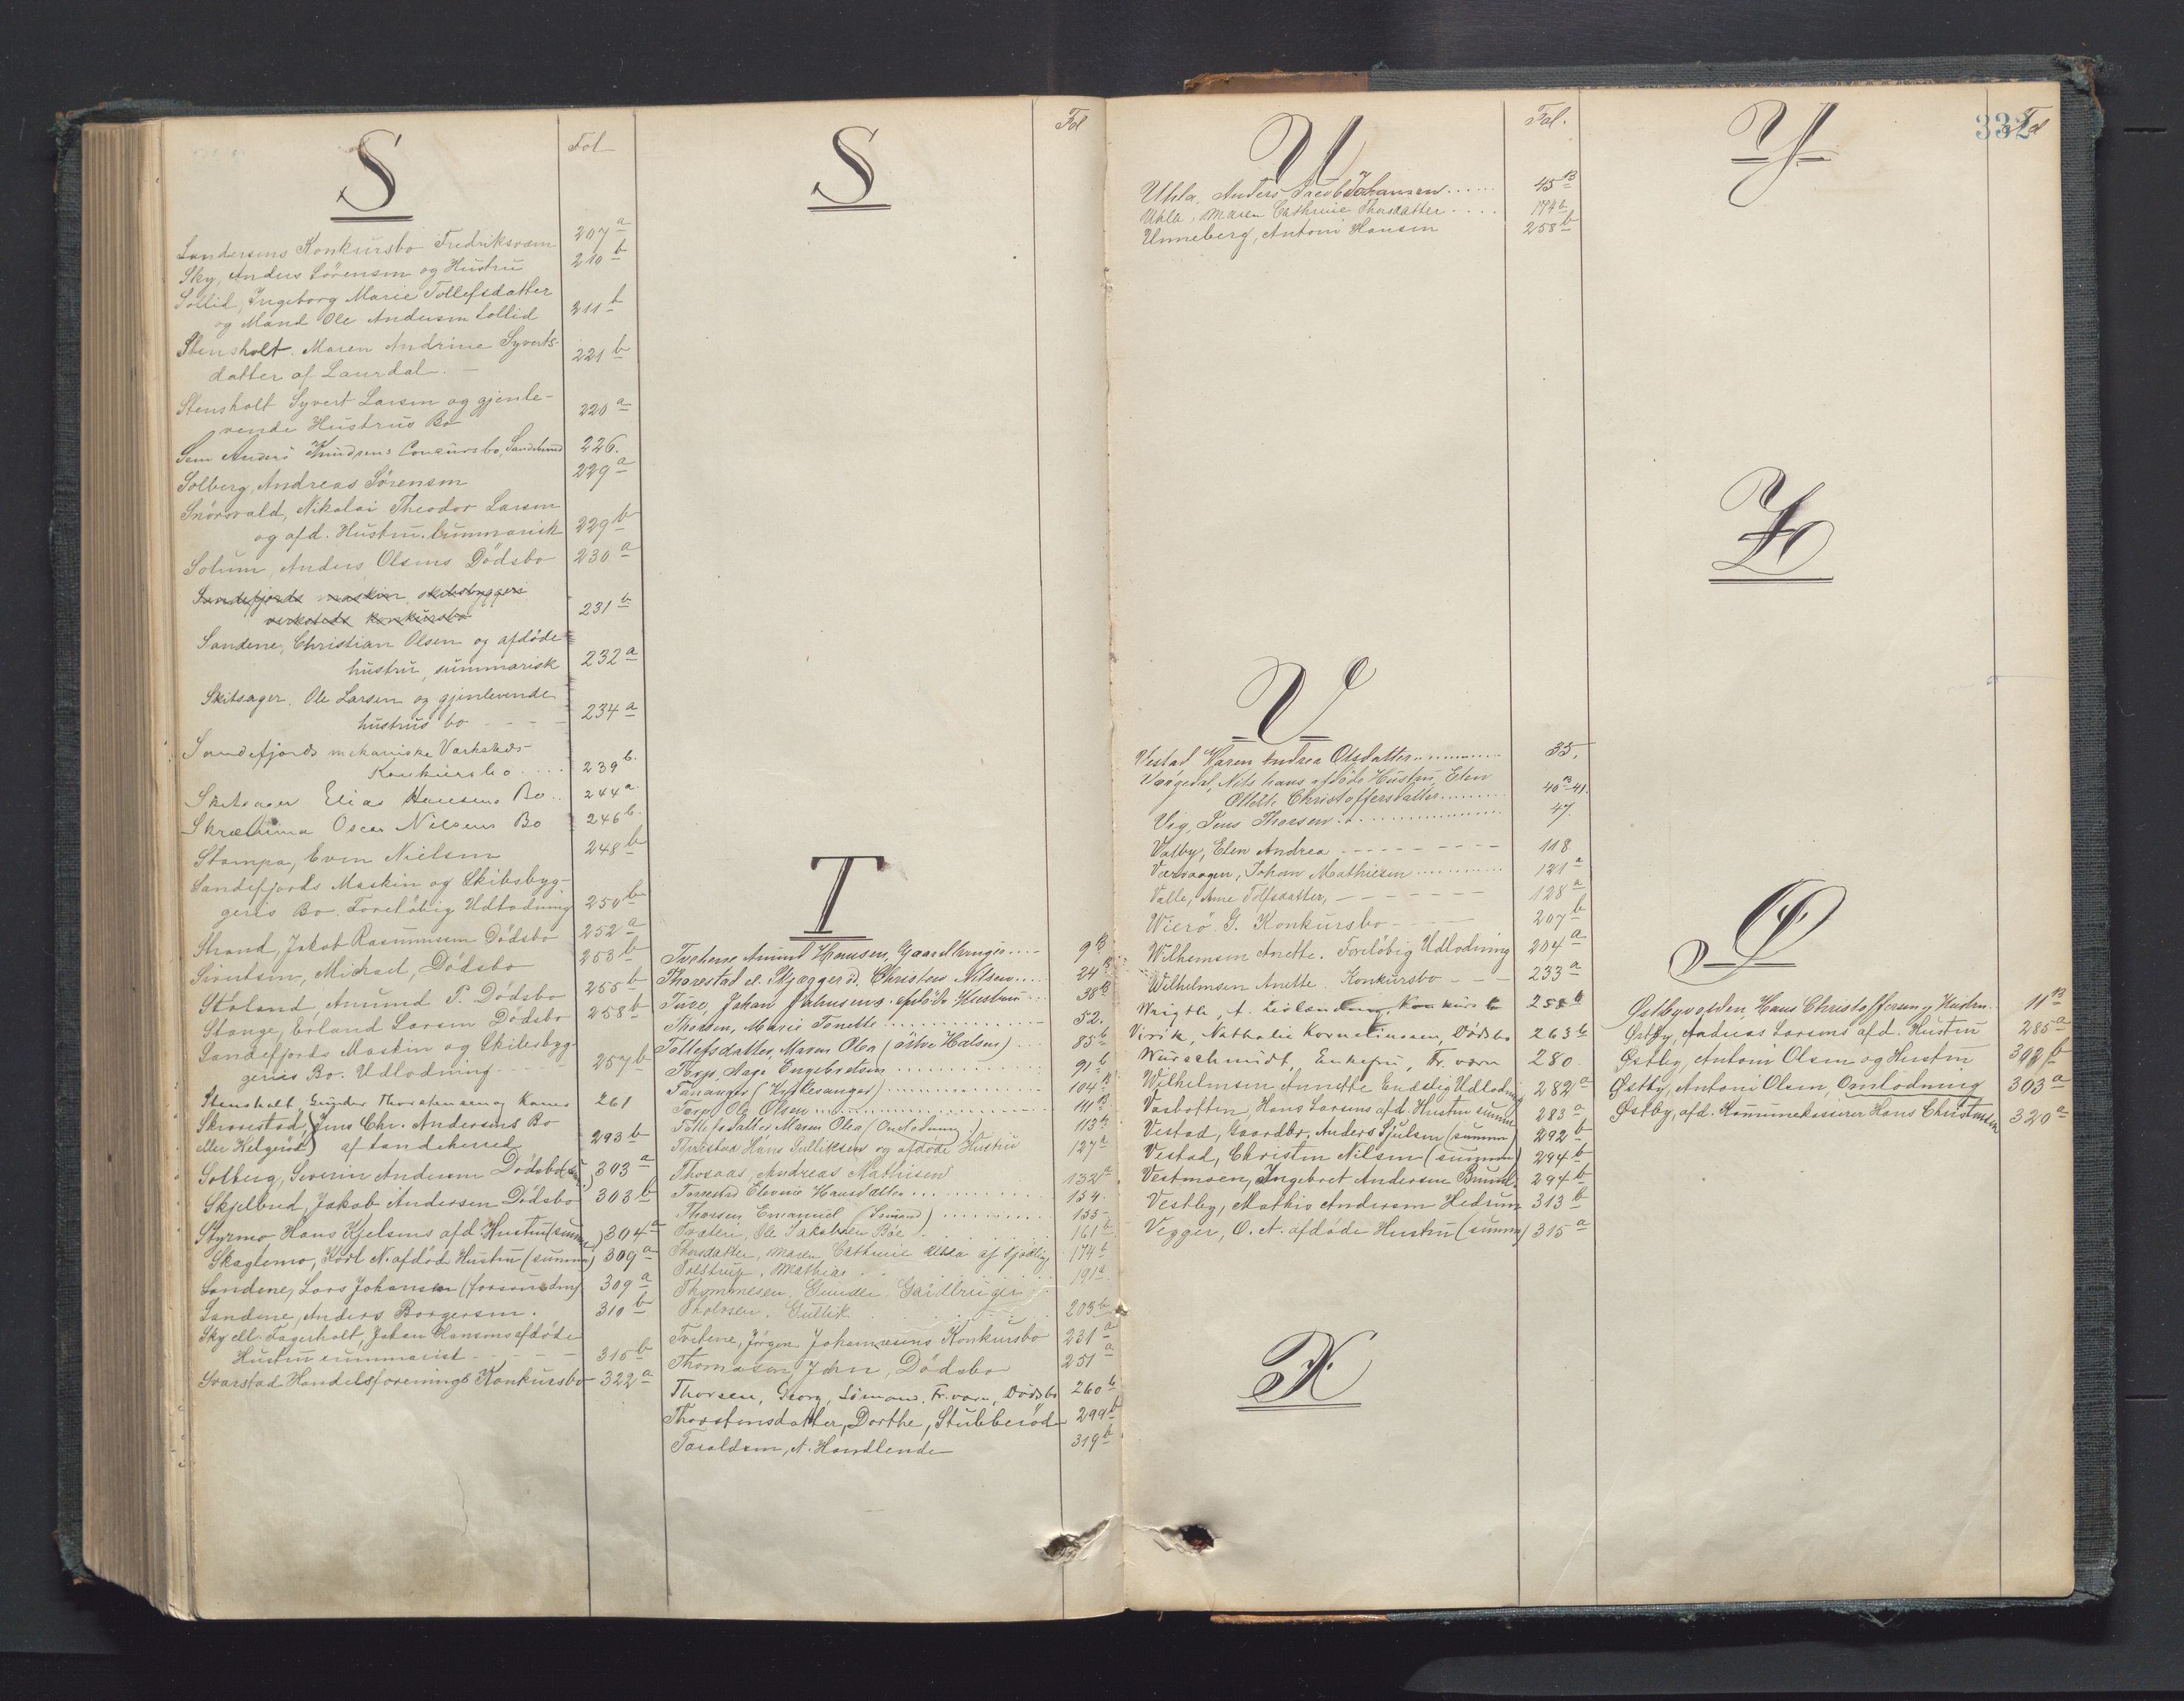 S
Fol
Sandersens Konkursbo Fredriksværn 207 a
Sky, Anders Sörensen og Hustru 210 b
Sollid, Ingeborg Marie Tollefsdatter
og Mand Ole Andersen Sollid 211 b
Stensholt. Maren Andrine Syverts-
datter af Laurdal. - 221 b
Stensholt Syvert Larsen og gjenle-
vende Hustrus Bo 220 a
Sem Anders Knudsens Concursbo, Sandeherred 226.
Solberg, Andreas Sörensen 229 a
Snörsvald, Nikolai Theodor Larsen
og afd. Hustru. summarisk 229 b
Solum, Anders Olsens Dödsbo 230 a
Sandefjords maskin skibsbyggeri
verksteds konkursbo 231 b
Sandene, Christian Olsen og afdöde
hustru, summarisk 232 a
Skitsager. Ole Larsen og gjenlevende
hustrus bo - - - 234 a
Sandefjords mekaniske Værksteds-
Konkursbo .... 239 b.
Skitsager Elias Hansens Bo .. 244 a.
Oscar Nilsens Bo 246 b.
Stampa, Even Nielsen 248 b
Sandefjords Maskin og Skibsbyg-
geris Bo. Foreløbig Udlodning 250 b
Strand, Jakob Rasmussen Dödsbo 252 a
Sivertsen, Michael, Dödsbo 253 b
Stöland, Amund P. Dödsbo 255 b
Stange, Erland Larsen Dödsbo 258 b
Sandefjords Maskin og Skibsbyg-
geris Bo. Udlodning - - - - 257 b
Stensholt, Gunder Thorstensen og Kones 261
Skorestad, Jens Chr. Andersens Bo
eller Helgeröd) af Sandeherred 293 b
Solberg, Severin Andersen Dödsbo 303 a
Skjelbred, Jakob Andersen Dödsbo 303 b
Styrmo Hans Kjelsens afd Hustru (summ.) 304 a
Skaglemo, Karl N. afdöde Hustru (summ) 309 a
Sandene, Lars Johansen (forsvunden) 309 a
Sandene, Anders Borgersen. 310 b
Sky ell. Fagerholt, Johan Hansens afdöde
Hustru summarisk - - - - 315 b
Svarstad Handelsforenings Konkursbo 322 a
S
Fol
T
Tvetene Amund Hansen, Gaardbruger .... 9 B
Thorestad el. Skjæggeröd. Christen Nilsen .... 24 B
Ture, Johan Julnsens afdöde Hustru ... 38 B
Thorsen, Marie Tonette .......... 52.
Tollefsdatter, Maren Olea (östre Halsen) ... 85 b
Torp, Aage Engebretsen .......... 91 b
Tananger (Kirkesanger) .......... 104 B
Torp, Ole Olsen .......... 111 B
Tollefsdatter Maren Olea (Omlodning) 113 b
Thorestad Hans Gulliksen og afdøde Hustru 127 a
Thosaas, Andreas Mathisen 132 a
Torrestad Elevine Hansdatter .......... 154.
Thorsen Emanuel (Sömand) .......... 155
Tveteri, Ole Jakobsen Böe .......... 161 b
Thorsdatter, Maren Cathrine Uhla af Tjodling 174 b
Tolstrup, Mathias .......... 191 a
Thommesen, Gunder Gaardbruger
Tholvsen, Gullik 203 b
Tvetene, Jörgen Johannesens Konkursbo 231 a
Thomasen, John, Dödsbo 251 a
Thorsen, Georg, Sömand, Fr. værn, Dödsbo 260 b
Thorstensdatter, Dorthe, Stubberöd 299 b
Taraldsen, A. Handlende 319 b
U
Fol.
Uhla, Anders Jacob Johansen ...... 45 B
Uhla, Maren Cathrine Thorsdatter .... 174 b
Unneberg, Antoni Hansen 258 b
V
Vestad Karen Andrea Olsdatter .......... 35.
Nils hans afdöde Hustru, Elen
Christoffersdatter .......... 40 B 41.
Vig, Jens Thorsen .......... 47.
Valby, Elen Andrea - - - - - - - - 118
Værvaagen, Johan Mathiesen .......... 121 a
Valle, Anne Tolfsdatter, - - - - - 128 a
Wierö G. Konkursbo - - - - 207 b
Wilhemsen Anette. Foreløbig Udlodning 204 a
Wilhelmsen Anette Konkursbo - - 233 a
Wrigth, A. Konkursb 258 b
Virik, Nathalie Korneliussen, Dødsbo 263 b
Wurschmidt, Enkefru, Fr. værn 280
Wilhelmsen Annette Endelig Udlodning 282 a
Vestoften, Hans Larsens afd. Hustru summ 283 a
Vestad, Gaardbr. Anders Sjulsen (summ) 292 b
Vestad, Christen Nilsen (summ) 294 b
Vestmoen, Ingebret Andersen Brunl. 294 b
Vestby, Mathis Andersen Hedrum 313 b
Vegger, O. A. afdöde Hustru (summ) 315 a
X
Y
Fol
332
Z
Ø
Østbyvolden, Hans Christoffersen og Hustru. 11 B
Østby, Andreas Larsens afd. Hustru 285 a
Østby, Antoni Olsen og Hustru 302 b
Østby, Antoni Olsen, Omlodning 303 a
Østby, afd. Kommunekasserer Hans Christensen 320 a